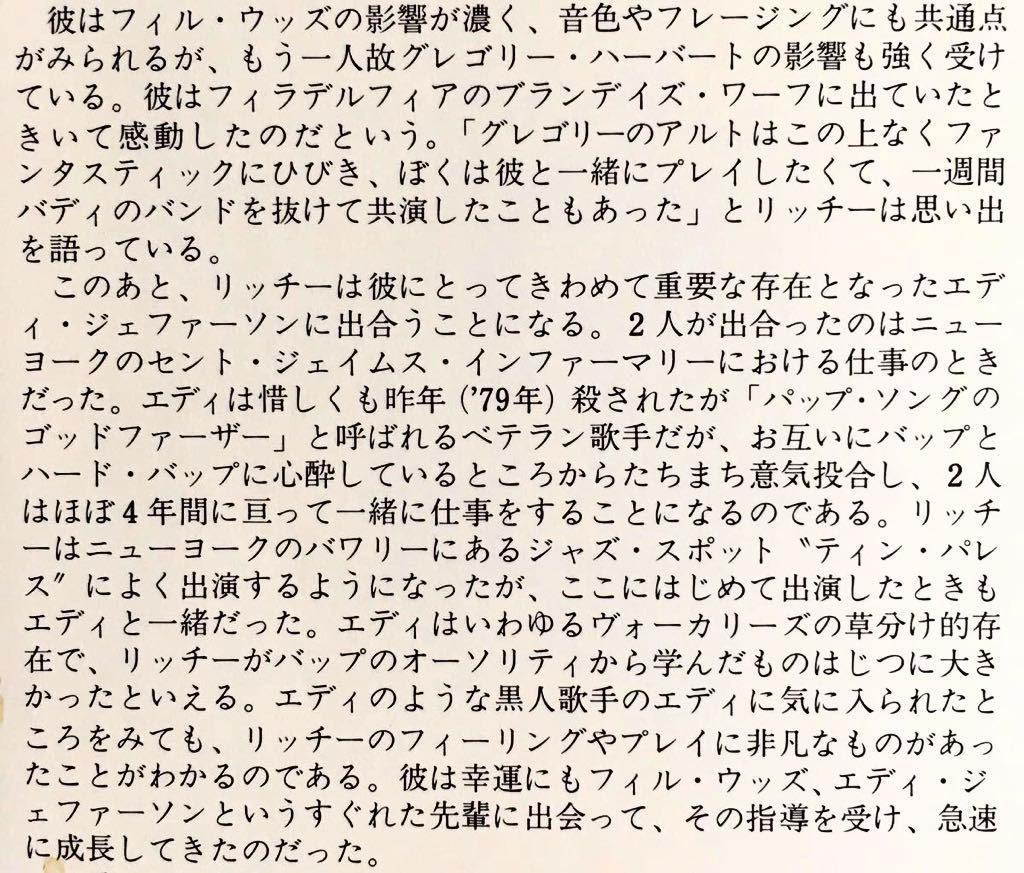 彼はフィル・ウッズの影響が濃く、音色やフレージングにも共通点
がみられるが、もう一人故グレゴリー・ハーバートの影響も強く受け
ている。彼はフィラデルフィアのブランデイズ・ワーフに出ていたと
きいて感動したのだという。「グレゴリーのアルトはこの上なくファ
ンタスティックにひびき、ぼくは彼と一緒にプレイしたくて、一週間
バディのバンドを抜けて共演したこともあった」とリッチーは思い出
を語っている。
このあと、リッチーは彼にとってきわめて重要な存在となったエデ
ィ・ジェファーソンに出合うことになる。2人が出合ったのはニュー
ヨークのセント・ジェイムス・インファーマリーにおける仕事のとき
だった。エディは惜しくも昨年('79年)殺されたが「バップ・ソングの
ゴッドファーザー」と呼ばれるベテラン歌手だが、お互いにバップと
ハード・バップに心酔しているところからたちまち意気投合し、2人
はほぼ4年間に亘って一緒に仕事をすることになるのである。リッチ
ーはニューヨークのバワリーにあるジャズ・スポット〝ティン・パレ
ス〟によく出演するようになったが、ここにはじめて出演したときも
エディと一緒だった。エディはいわゆるヴォーカリーズの草分け的存
在で、リッチーがバップのオーソリティから学んだものはじつに大き
かったといえる。エディのような黒人歌手のエディに気に入られたと
ころをみても、リッチーのフィーリングやプレイに非凡なものがあっ
たことがわかるのである。彼は幸運にもフィル・ウッズ、エディ・ジ
ェファーソンというすぐれた先輩に出会って、その指導を受け、急速
に成長してきたのだった。